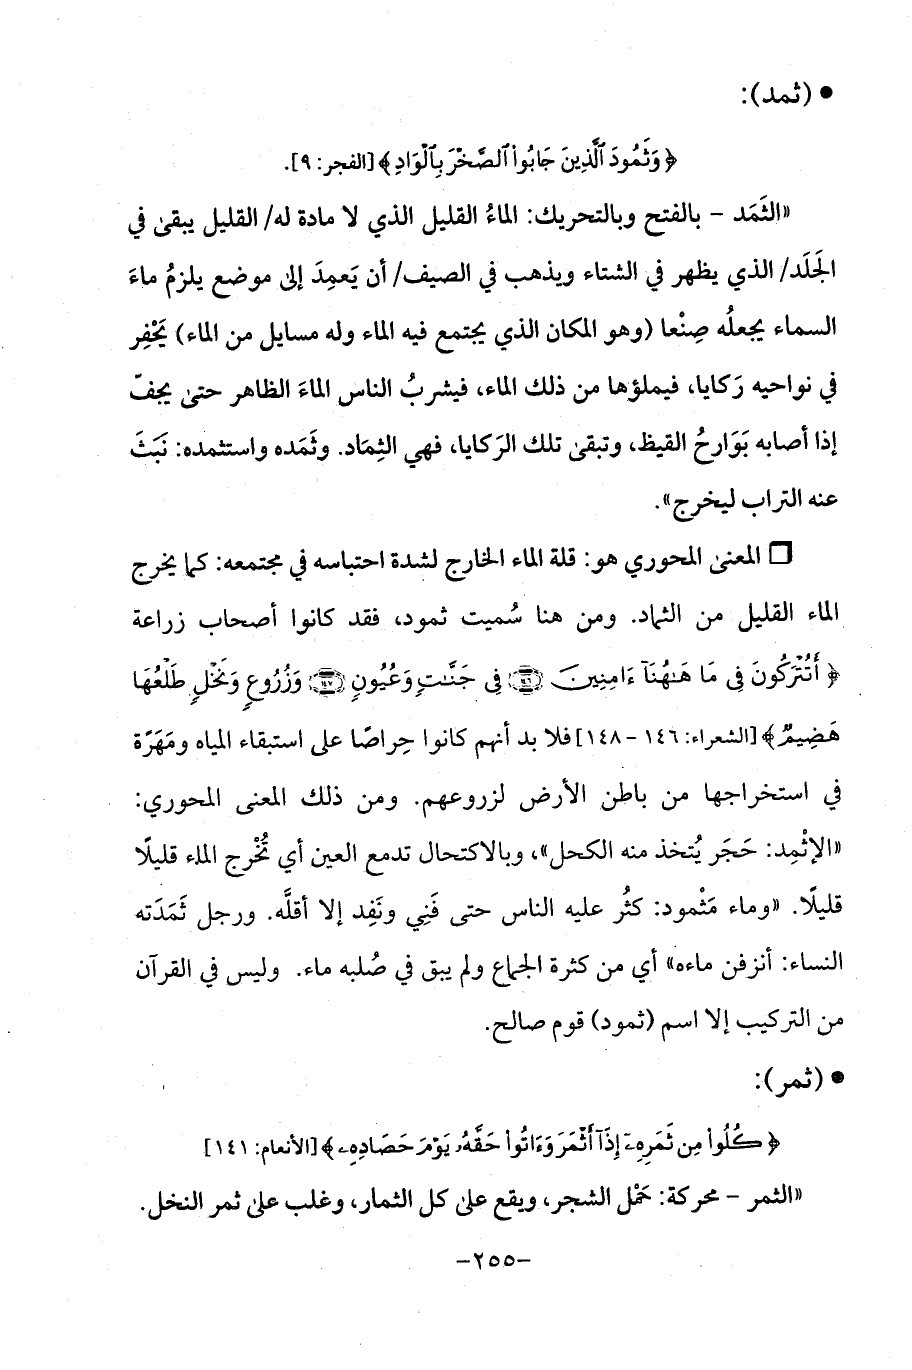 • (ثمد):
﴿ وَثَمُودَ ٱلَّذِينَ جَابُوا۟ ٱلصَّخْرَ بِٱلْوَادِ ﴾ [الفجر: ٩].
«الثَمَد – بالفتح وبالتحريك: الماءُ القليل الذي لا مادة له/ القليل يبقى في
الجَلَد/ الذي يظهر في الشتاء ويذهب في الصيف/ أن يَعمِدَ إلى موضع يلزمُ ماءَ
السماء يجعلُه صِنْعا (وهو المكان الذي يجتمع فيه الماء وله مسايل من الماء) يَحْفِر
في نواحيه رَكايا، فيملؤها من ذلك الماء، فيشربُ الناس الماءَ الظاهر حتى يجفّ
إذا أصابه بَوَارحُ القيظ، وتبقى تلك الرَكايا، فهي الثِمَاد. وثَمَده واستثمده: نَبَثَ
عنه التراب ليخرج».
❑ المعنى المحوري هو: قلة الماء الخارج لشدة احتباسه في مجتمعه: كما يخرج
الماء القليل من الثماد. ومن هنا سُميت ثمود، فقد كانوا أصحاب زراعة
﴿ أَتُتْرَكُونَ فِى مَا هَـٰهُنَآ ءَامِنِينَ ۝١٤٦ فِى جَنَّـٰتٍ وَعُيُونٍ ۝١٤٧ وَزُرُوعٍ وَنَخْلٍ طَلْعُهَا
هَضِيمٌ ﴾ [الشعراء: ١٤٦ – ١٤٨] فلا بد أنهم كانوا حِراصًا على استبقاء المياه ومَهَرَة
في استخراجها من باطن الأرض لزروعهم. ومن ذلك المعنى المحوري:
«الإثْمِد: حَجَر يُتخذ منه الكحل»، وبالاكتحال تدمع العين أي تُخْرج الماء قليلًا
قليلًا. «وماء مَثْمود: كثُر عليه الناس حتى فَنِي ونَفِد إلا أقلَّه. ورجل ثَمَدَته
النساء: أنزفن ماءه» أي من كثرة الجماع ولم يبق في صُلبه ماء. وليس في القرآن
من التركيب إلا اسم (ثمود) قوم صالح.
• (ثمر):
﴿ كُلُوا۟ مِن ثَمَرِهِۦٓ إِذَآ أَثْمَرَ وَءَاتُوا۟ حَقَّهُۥ يَوْمَ حَصَادِهِۦ ﴾ [الأنعام: ١٤١]
«الثمر – محركة: حَمْل الشجر، ويقع على كل الثمار، وغلب على ثمر النخل.
–٢٥٥–